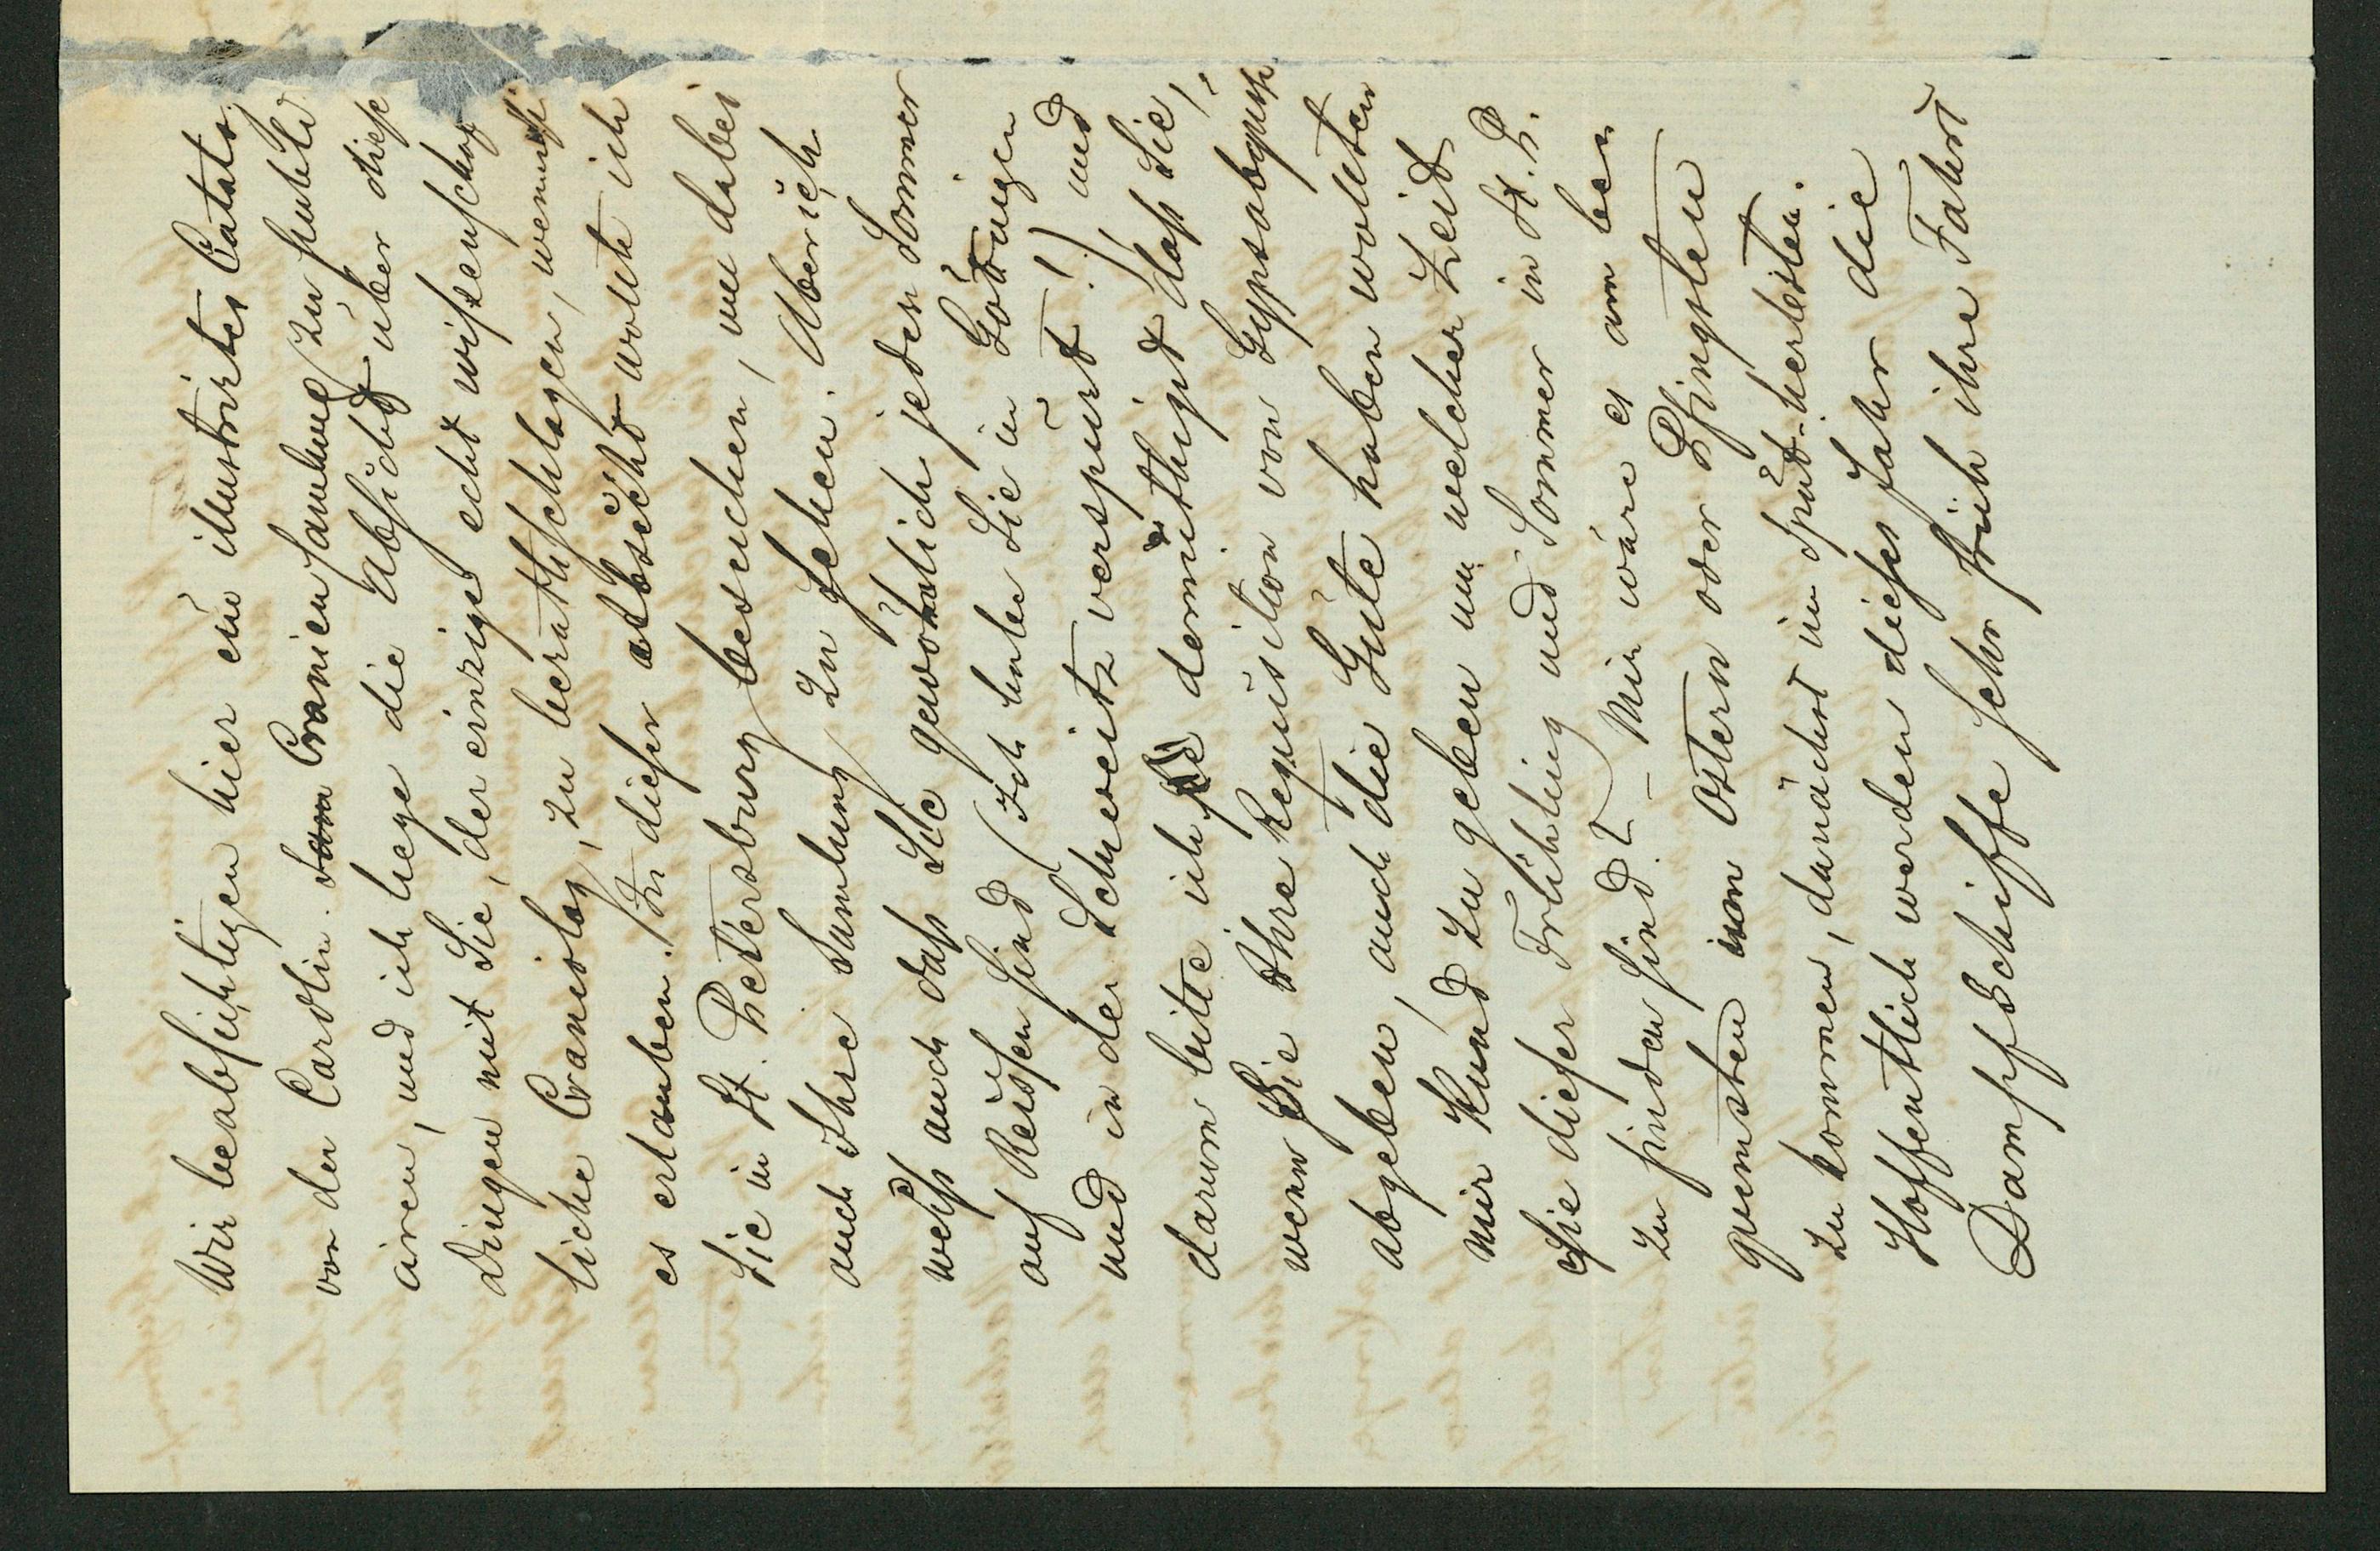 Wir beabsichtigen hier ein illustrirtes Catalo
von der Carolin. Cranien samlung zu publi
ciren, und ich hege die Absicht über diese
Dingen mit Sie, der einzige echt wissenschaf
liche Craniolog, zu berathschlagen, wenn Sie
es erlauben. In dieser absicht wollte ich
Sie in St. Petersburg besuchen, um dabei
auch Ihre Samlung zu sehen. Aber ich
weiss auch dass Sie gewöhnlich jeden Sommer
auf Reissen sind (Ich habe Sie in Göttingen
und in der Schweitz verspürt!) und
darum bitte ich demüthigst dass Sie,
wenn Sie Ihre Requisition von Gypsabgüsse
abgeben, auch die Güte haben wollten
mir Kund zu geben um welcher Zeit
Sie dieser Frühling und Sommer in St. P.
zu finden sind? – Mir wäre es am be
quemsten um Ostern oder Pfingsten
zu kommen, danächst im Spät-herbsten.
Hoffentlich werden dieses Jahr die
Dampfschiffe sehr früh ihre Fahrt